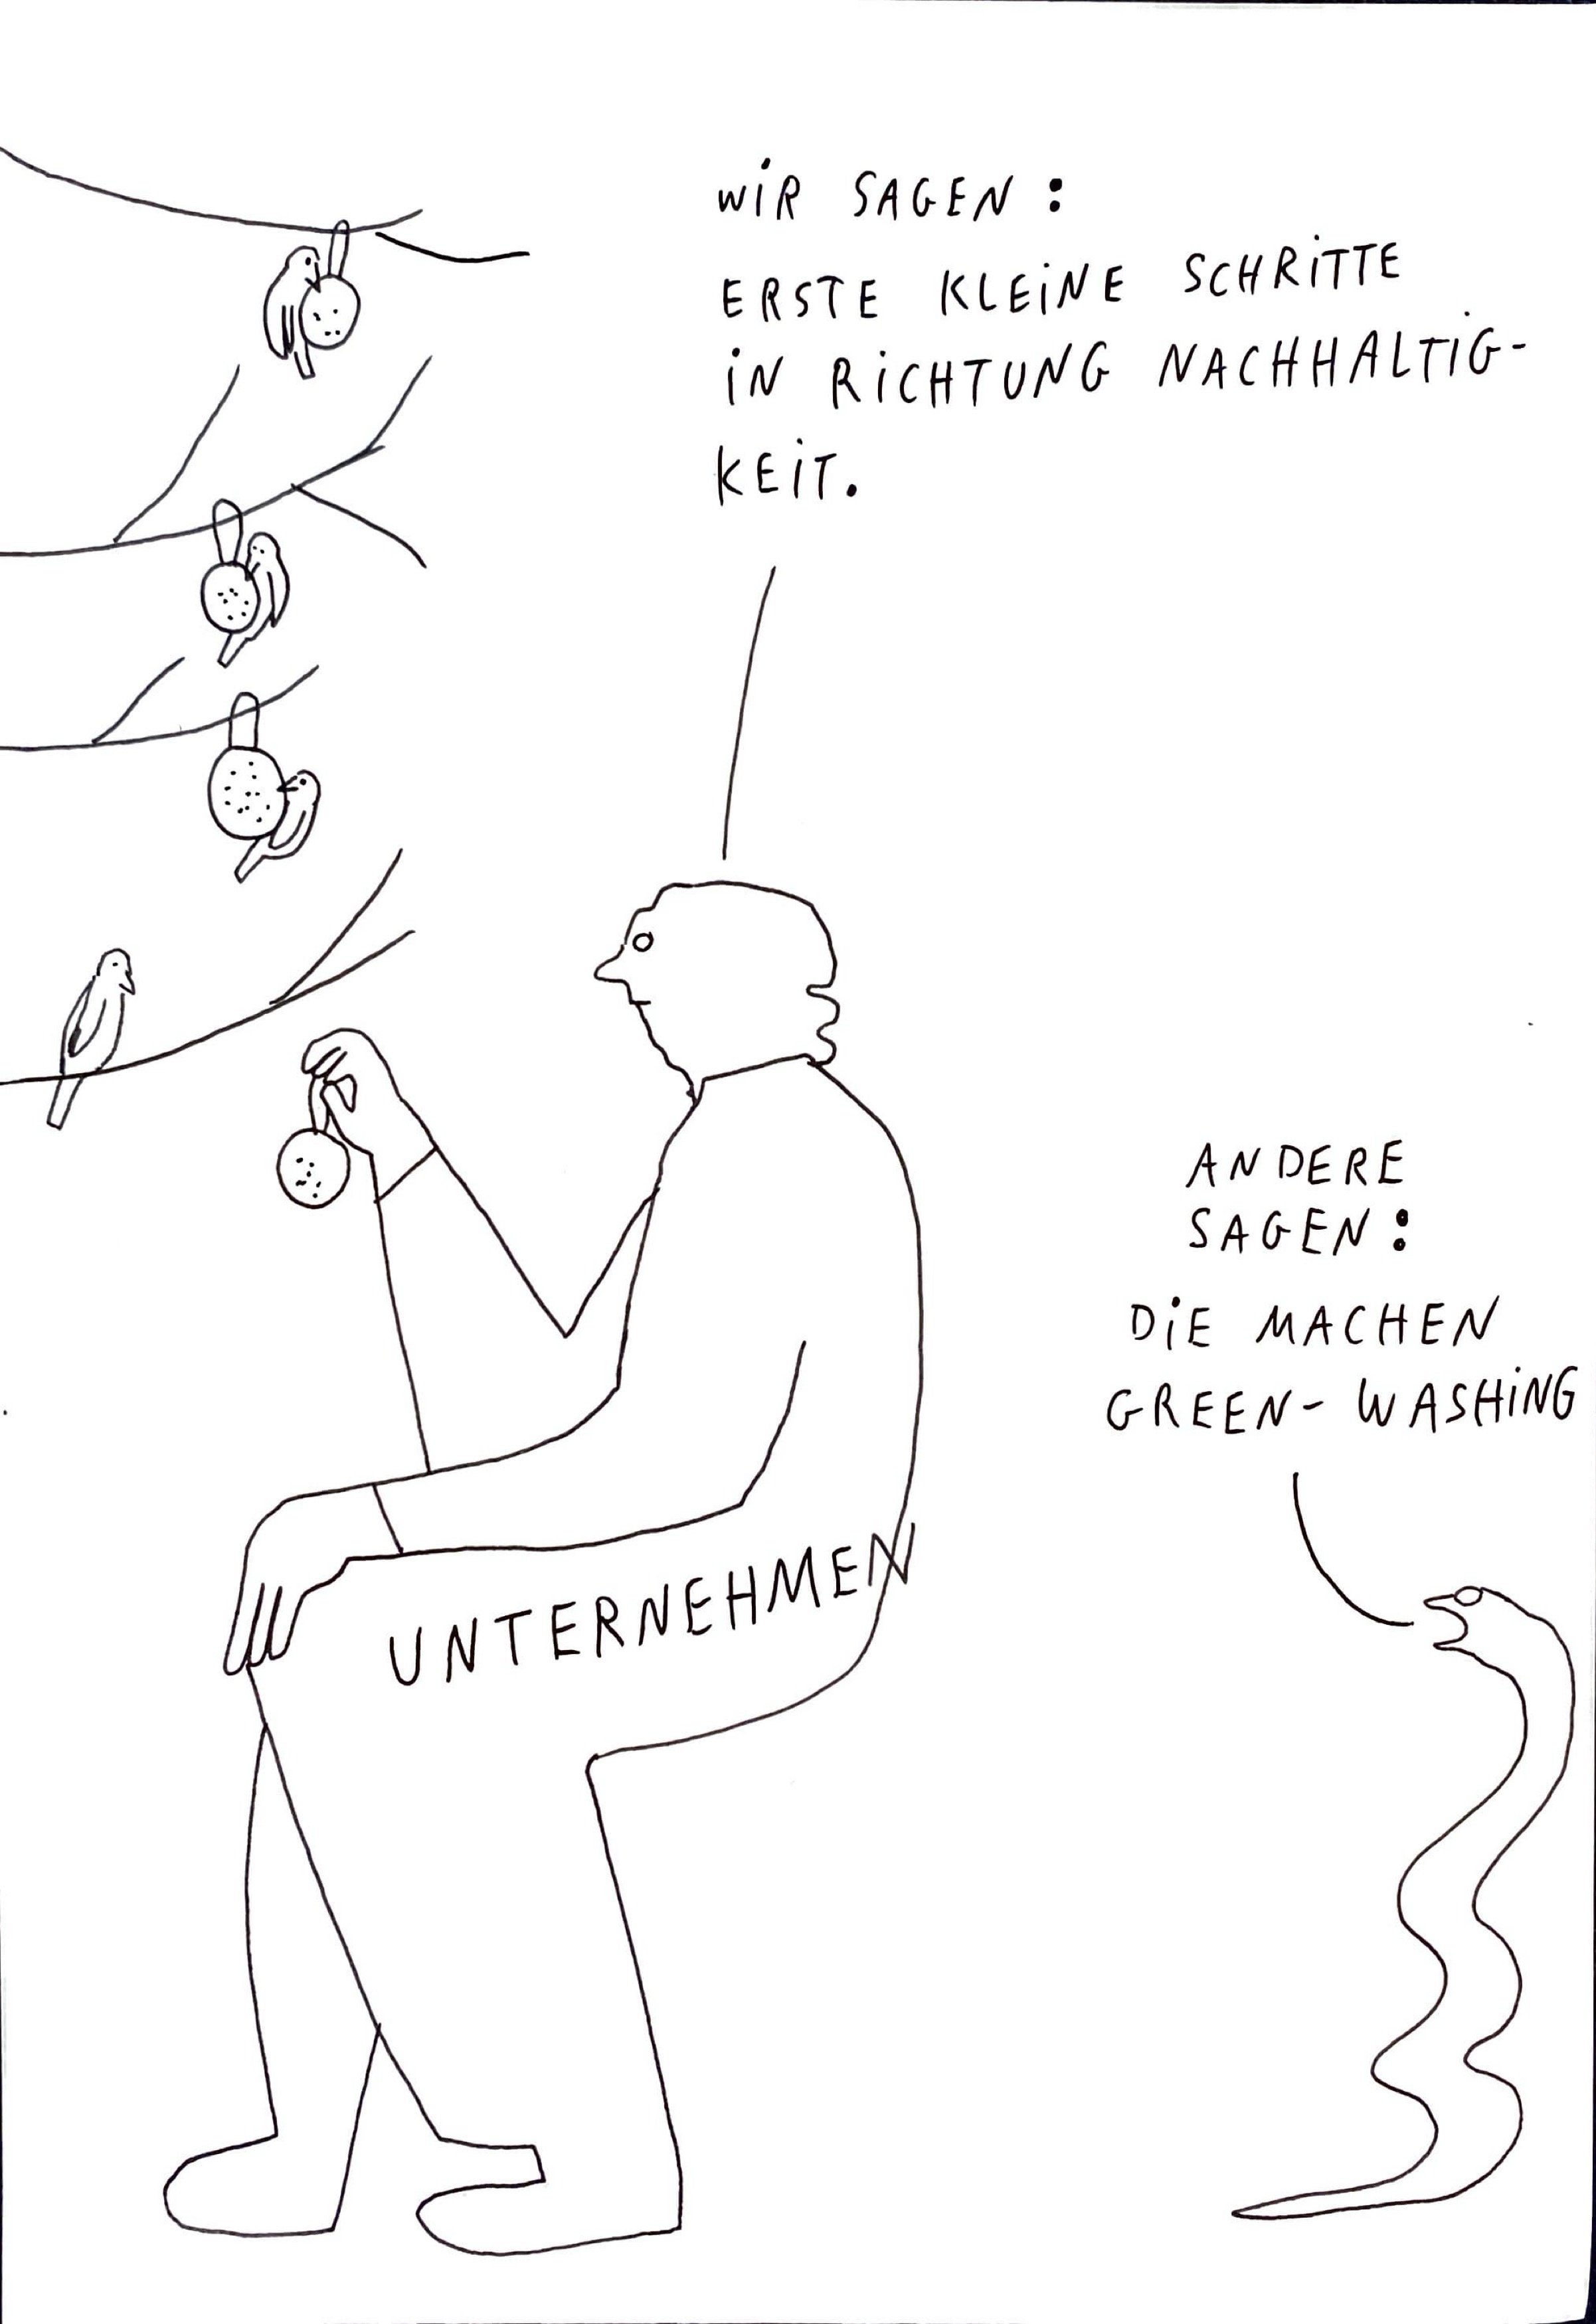 WIR SAGEN:
ERSTE KLEINE SCHRITTE
IN RICHTUNG NACHHALTIG-
KEIT.
ANDERE
SAGEN:
DIE MACHEN
GREEN-WASHING
UNTERNEHMEN